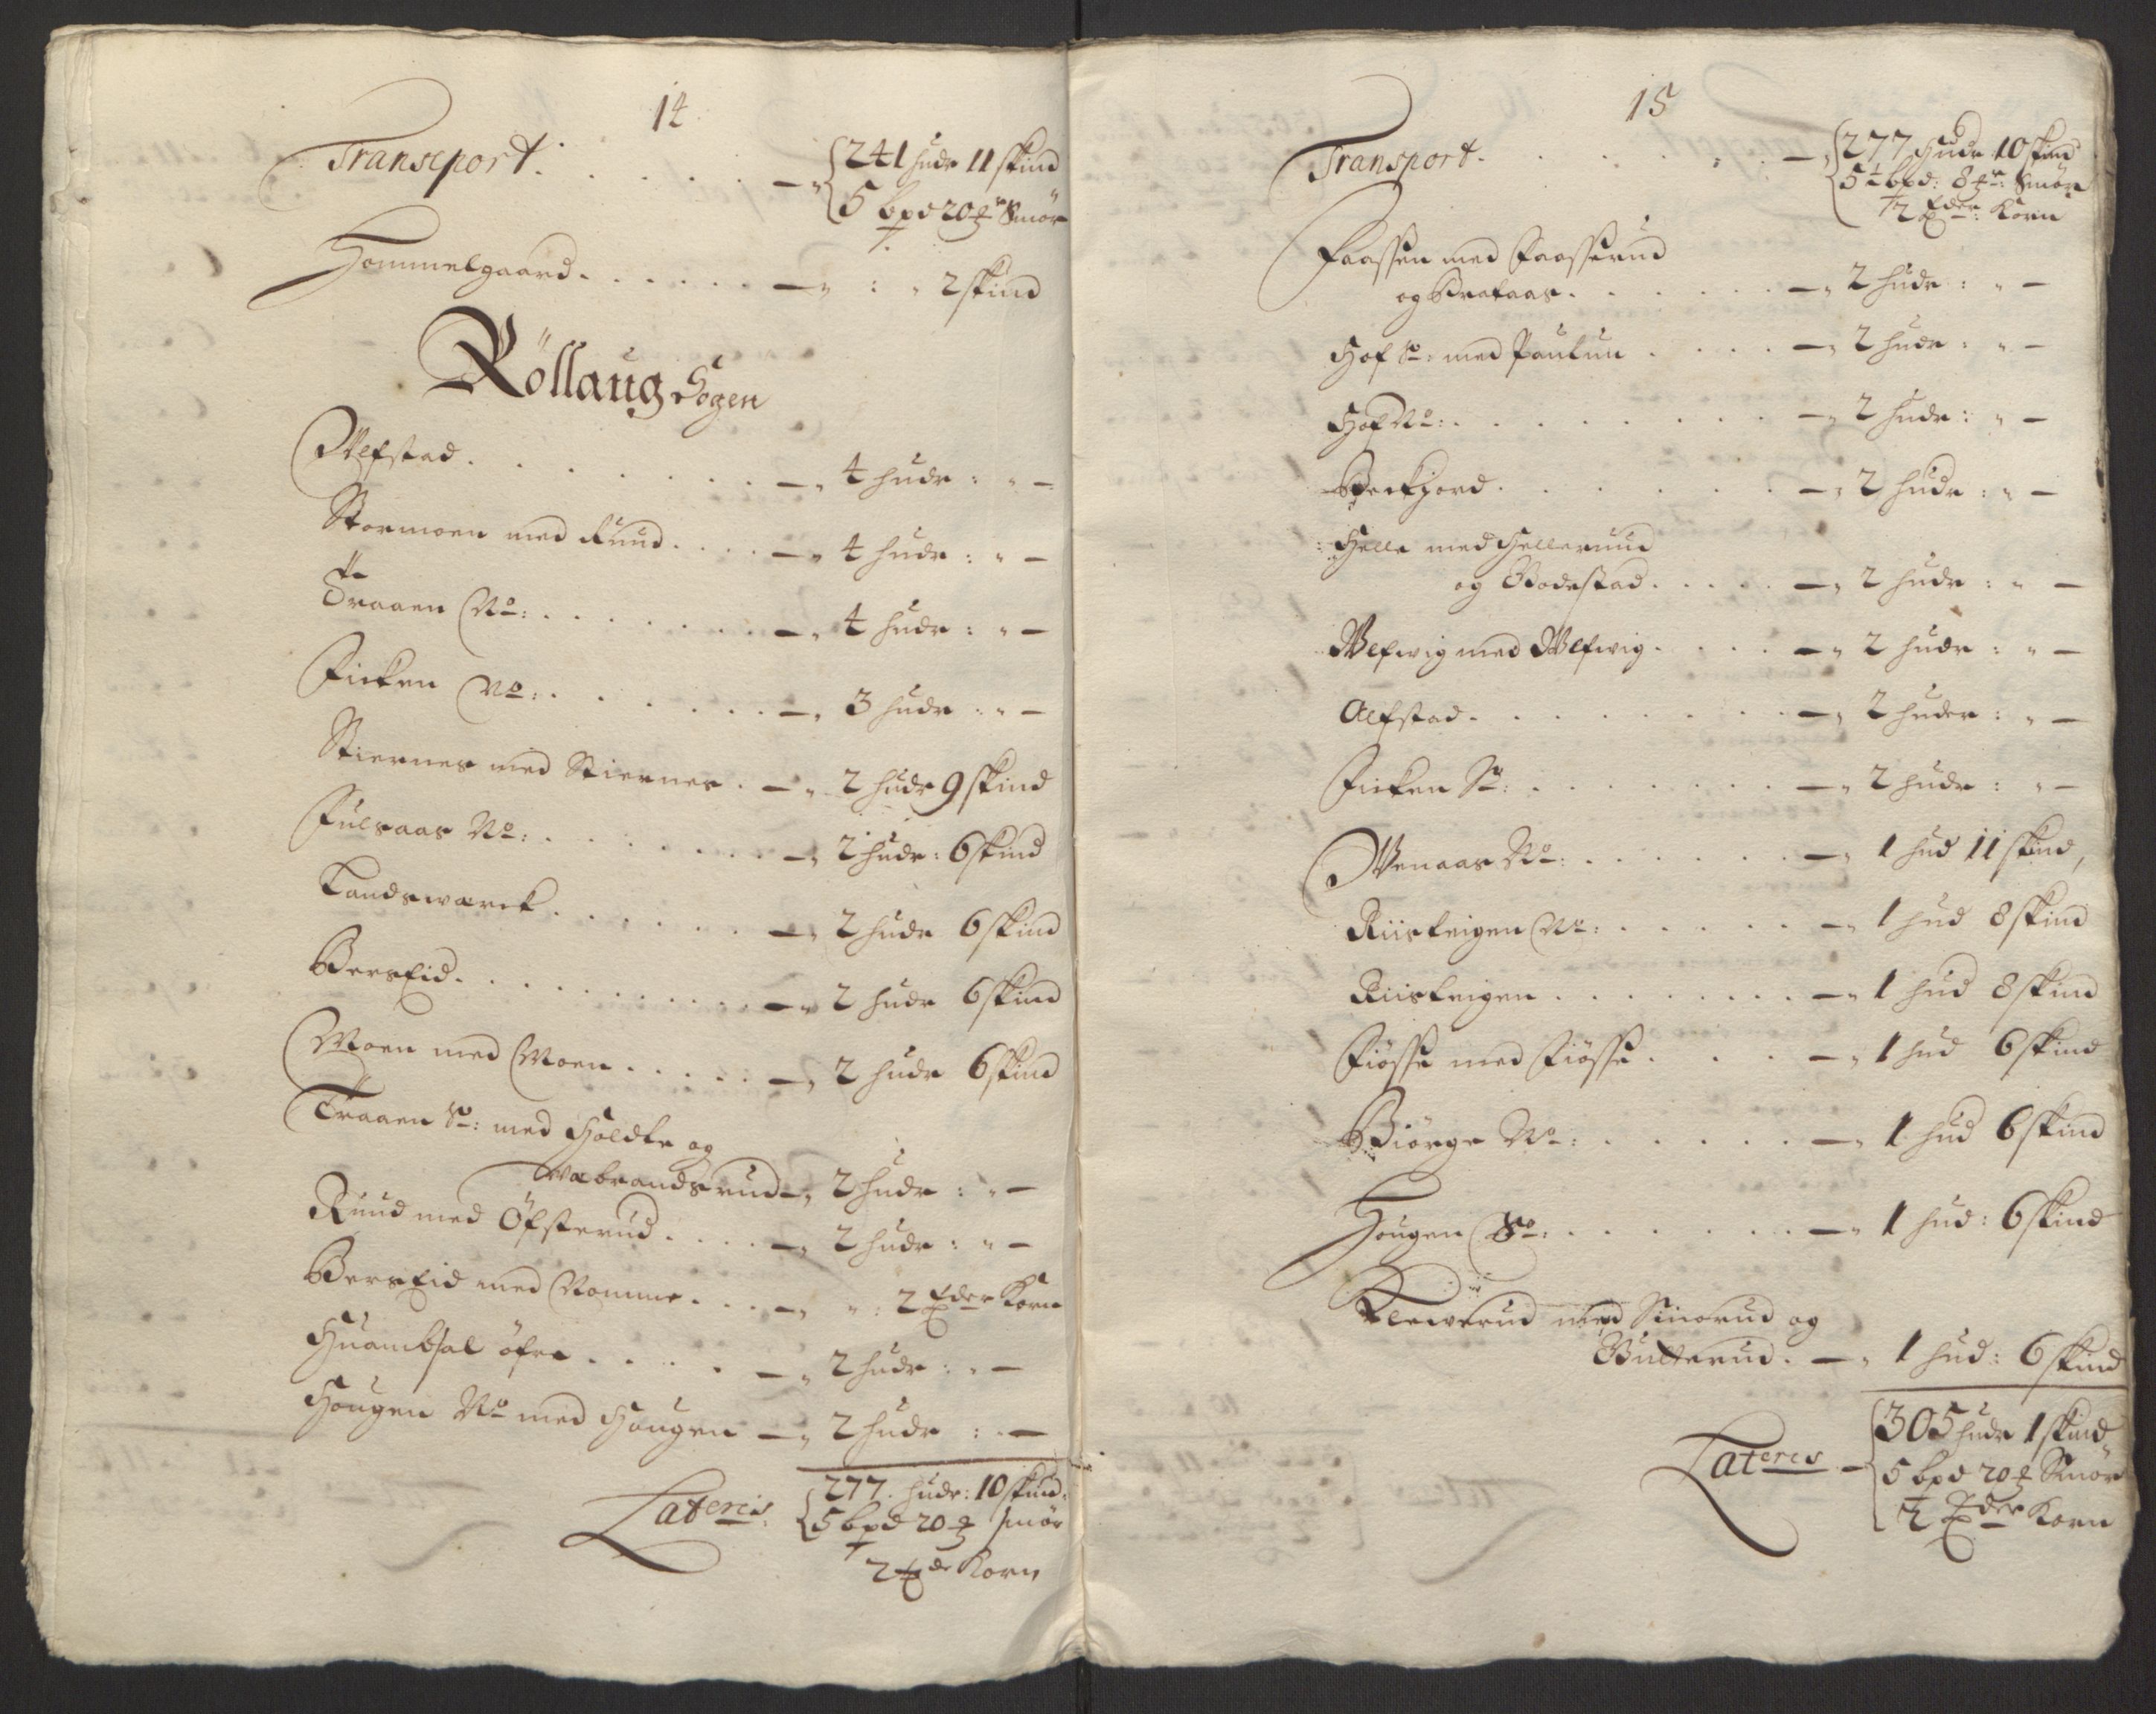 14
Transport. — 241 huder 11 skind
5 bpd 20 ₰ Smör
Hommelgaard. — „ : „ 2 skind
Röllaug Sogen
Wlfstad. — „ 4 huder : „ —
Stormoen med Ruud. — „ 4 huder : „ —
Traaen No: — „ 4 huder : „ —
Ficken No: — „ 3 huder : „ —
Stiernes med Stiernes. — „ 2 huder 9 skind
Fulsaas No: — „ 2 huder: 6 skind
Landswærck. — „ 2 huder 6 skind
Bersæid. — „ 2 huder 6 skind
Moen med Moen. — „ 2 huder 6 skind
Traaen So: med Holdte og
brandsrud — „ 2 huder : „ —
Ruud med Öfsterud. — „ 2 huder : „ —
Bersæid med Romme. — „ „ : 2 Tder Korn
Huambsal öfre. — „ 2 huder : „ —
Hougen No med Hougen — „ 2 huder : „ —
Lateris. 277. huder: 10 skind.
5 bpd 20 ₰ smör
2 Tde Korn
15
Transport. — 277 huder 10 skind
5 bpd: Smör
2 Tder: Korn
Faassen med Faasserud
og — „ 2 huder : „ —
Hof So: med — „ 2 huder : „ —
Hof No: — „ 2 huder : „ —
— „ 2 huder : „ —
Helle med Hellerud
og Bodestad. — „ 2 huder : „ —
Wlfwig med Wlfwig. — „ 2 huder : „ —
Alfstad. — „ 2 huder : „ —
Ficken So: — „ 2 huder : „ —
Wenaas No: — „ 1 hud 11 skind,
Riisteigen No: — „ 1 hud 8 skind
Riisteigen. — „ 1 hud 8 skind
Fiösse med Fiösse. — „ 1 hud 6 skind
Biörge No: — „ 1 hud 6 skind
Hougen So: — „ 1 hud: 6 skind
Klewerud med Sinorud og
Bulterud. — „ 1 hud: 6 skind
Lateris — 305 huder 1 skind
5 bpd 20 ₰ Smör
2 Tder Korn